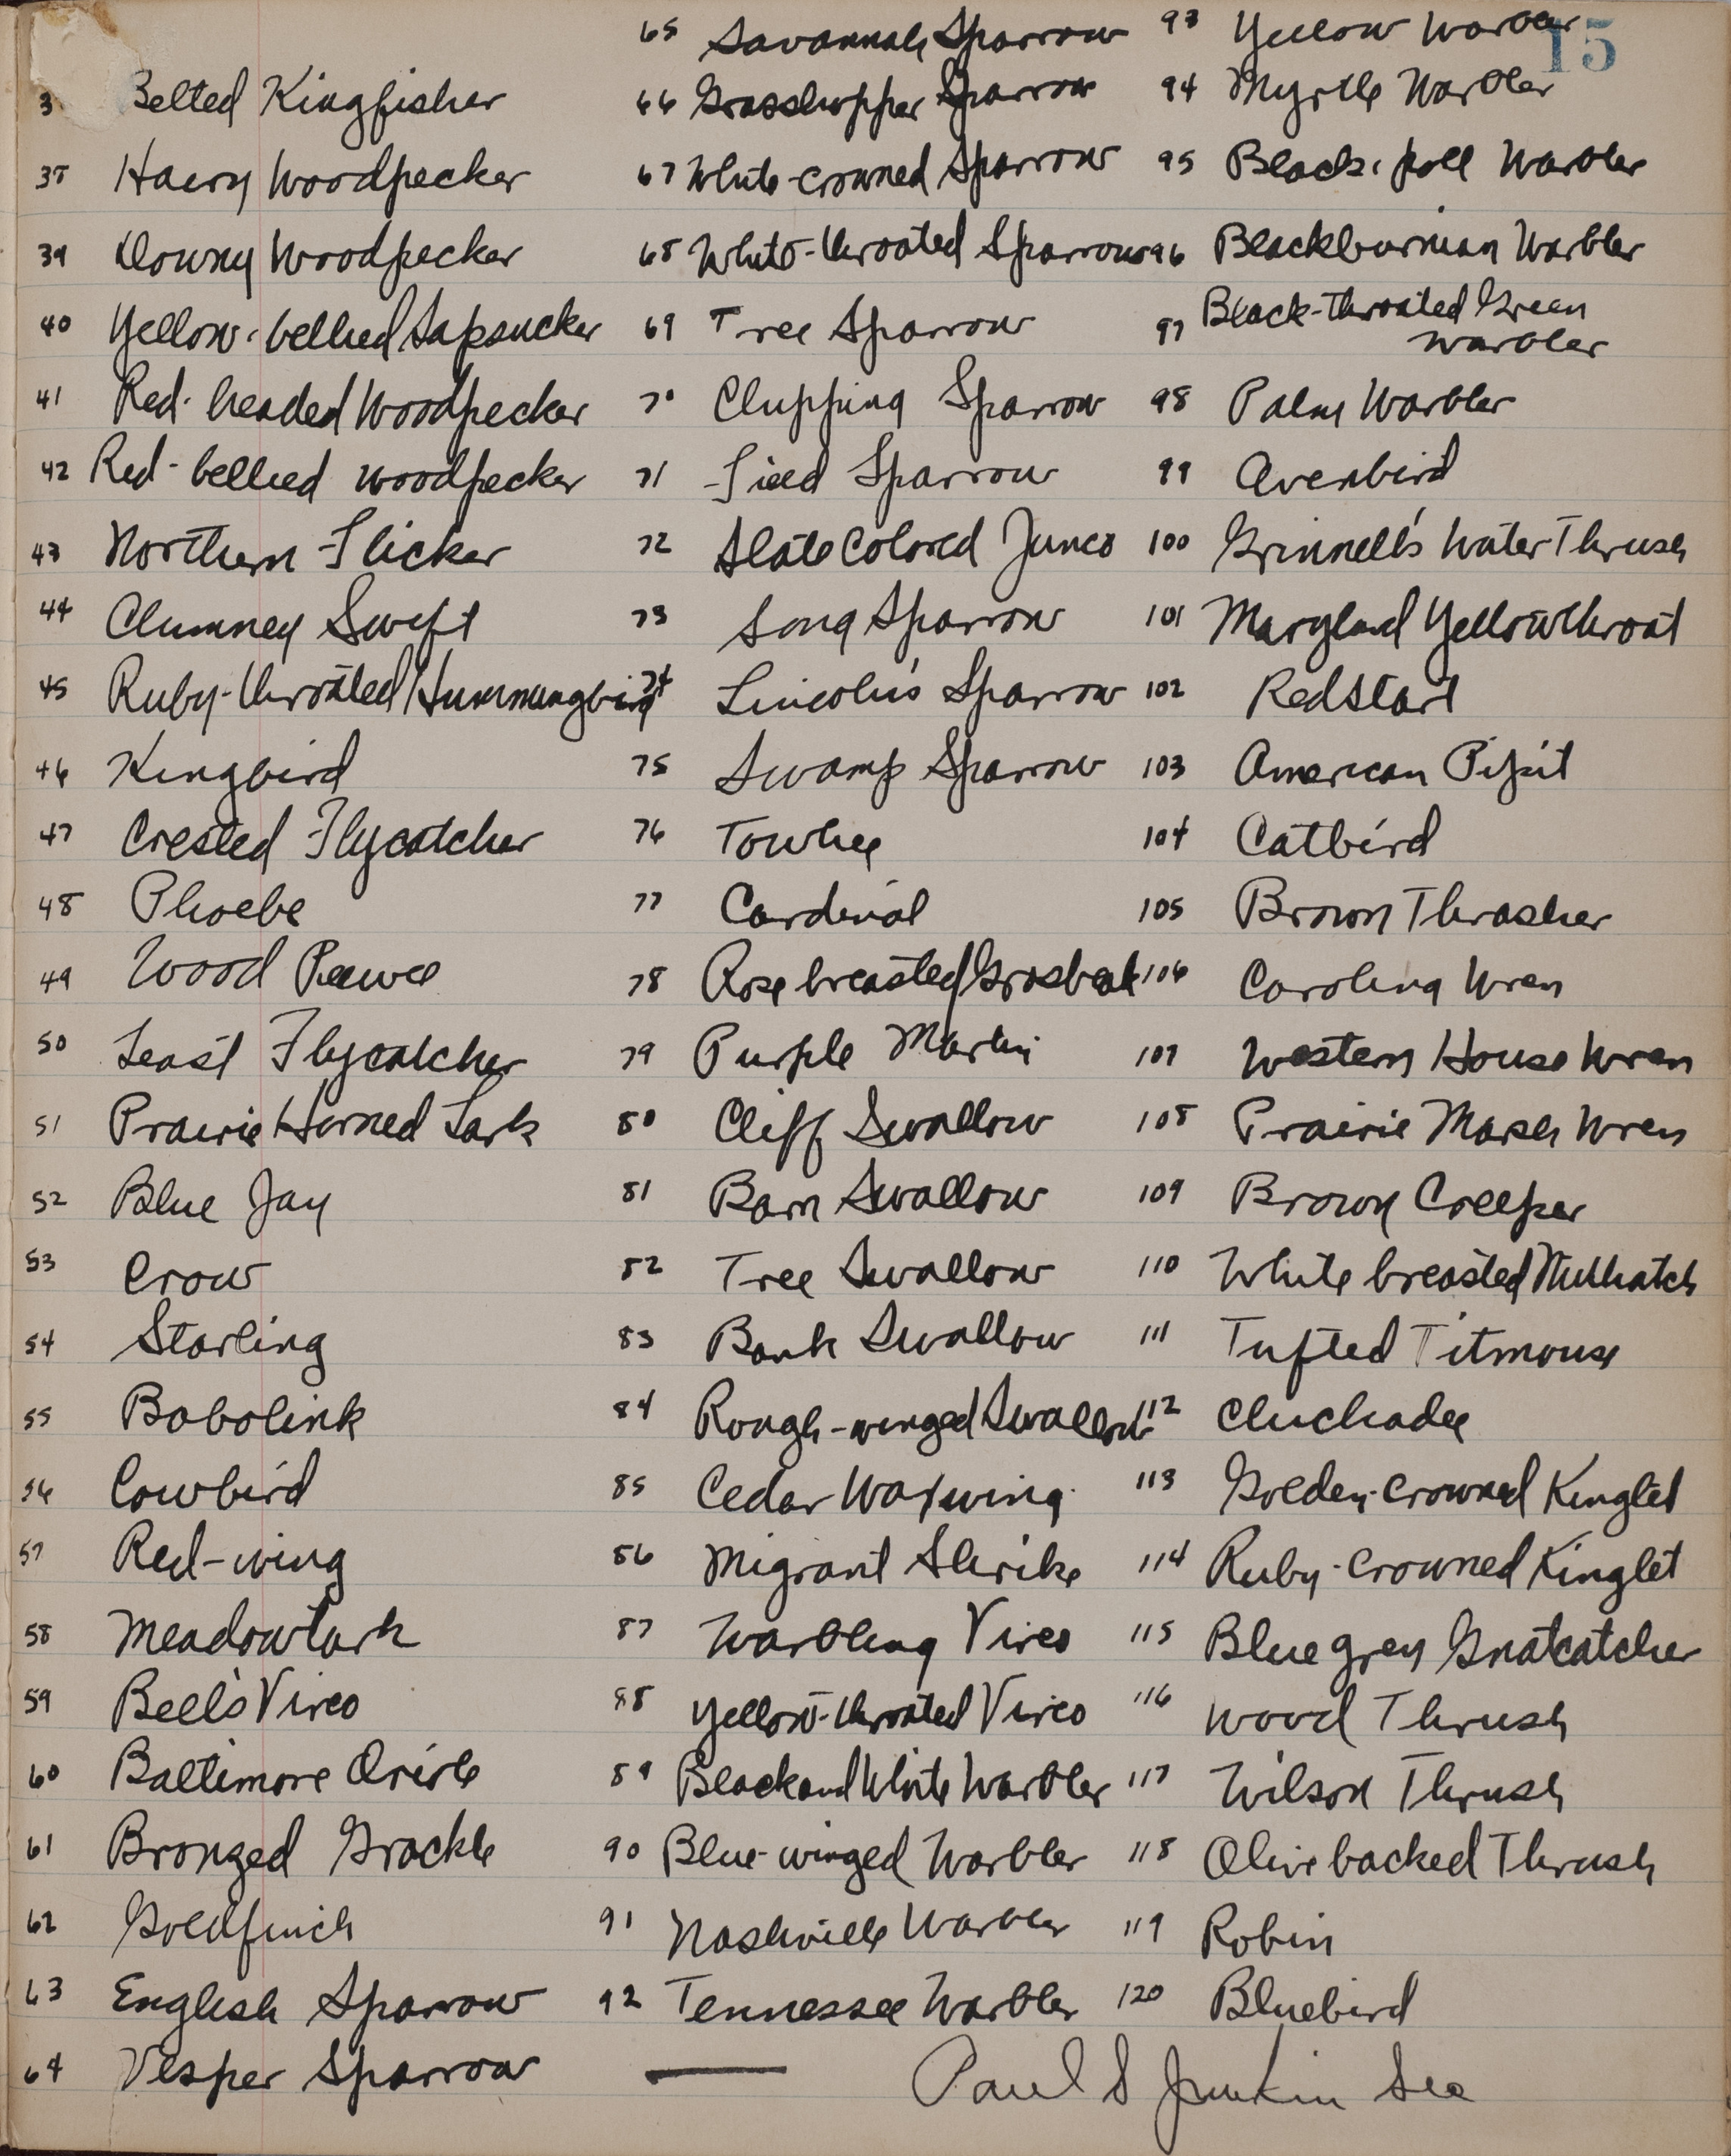 15
3 Belted Kingfisher
38 Hairy Woodpecker
39 Downy Woodpecker
40 Yellow-bellied Sapsucker
41 Red-headed Woodpecker
42 Red-bellied woodpecker
43 Northern Flicker
44 Chimney Swift
45 Ruby-throated Hummingbird
46 Kingbird
47 Crested Flycatcher
48 Phoebe
49 Wood Peewee
50 Least Flycatcher
51 Prairie Horned Lark
52 Blue Jay
53 Crow
54 Starling
55 Bobolink
56 Cowbird
57 Red-wing
58 Meadowlark
59 Bell's Vireo
60 Baltimore Oriole
61 Bronzed Grackle
62 Goldfinch
63 English Sparrow
64 Vesper Sparrow
65 Savannah Sparrow
66 Grasshopper Sparrow
67 White-crowned Sparrow
68 White-throated Sparrow
69 Tree Sparrow
70 Chipping Sparrow
71 Field Sparrow
72 Slate Colored Junco
73 Song Sparrow
74 Lincoln's Sparrow
75 Swamp Sparrow
76 Towhee
77 Cardinal
78 Rose breasted Grosbeak
79 Purple Martin
80 Cliff Swallow
81 Barn Swallow
82 Tree Swallow
83 Bank Swallow
84 Rough-winged Swallow
85 Cedar Waxwing
86 Migrant Shrike
87 Warbling Vireo
88 Yellow-throated Vireo
89 Black and White Warbler
90 Blue-winged Warbler
91 Nashville Warbler
92 Tennessee Warbler
93 Yellow Warbler
94 Myrtle Warbler
95 Black-poll Warbler
96 Blackburnian Warbler
97 Black-throated Green
Warbler
98 Palm Warbler
99 Ovenbird
100 Grinnell's Water Thrush
101 Maryland Yellowthroat
102 Redstart
103 American Pipit
104 Catbird
105 Brown Thrasher
106 Carolina Wren
107 Western House Wren
108 Prairie Marsh Wren
109 Brown Creeper
110 White breasted Nuthatch
111 Tufted Titmouse
112 Chickadee
113 Golden-crowned Kinglet
114 Ruby-crowned Kinglet
115 Blue grey Gnatcatcher
116 Wood Thrush
117 Wilson Thrush
118 Olive backed Thrush
119 Robin
120 Bluebird
Paul S Junkin Sec